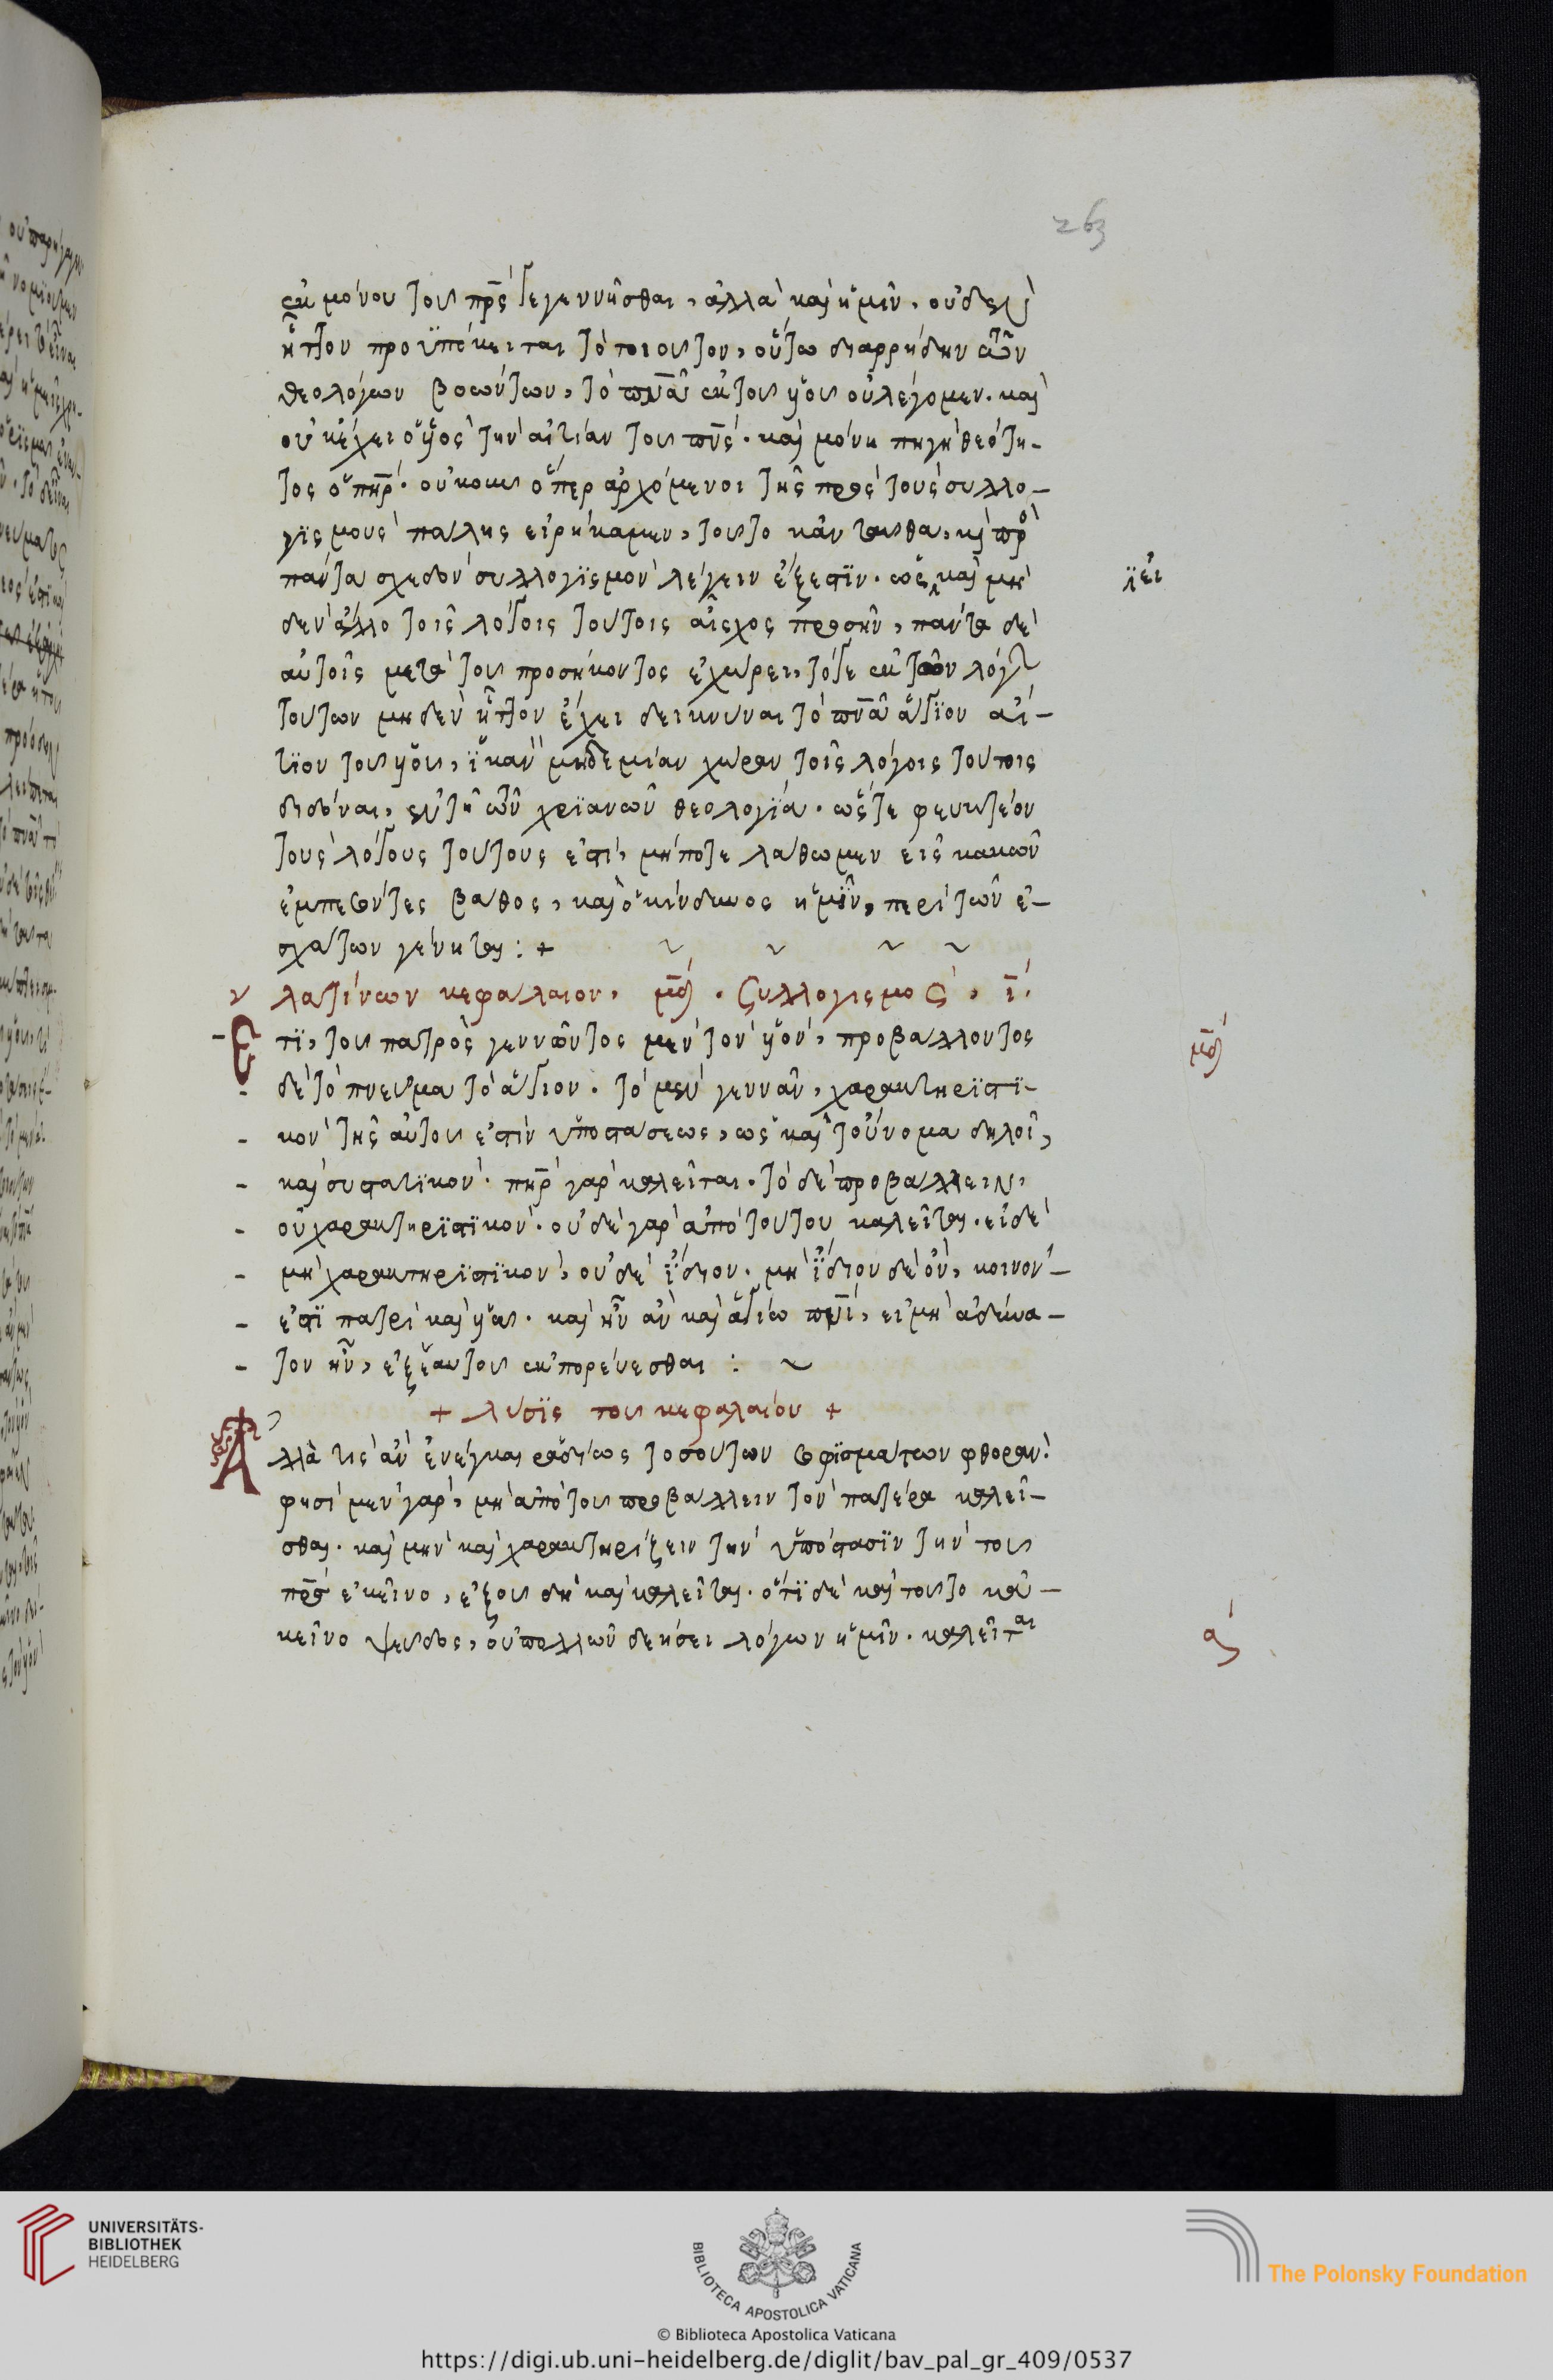 263
ἐκ μόνου τοῦ πρς γεγεννῆσθαι, ἀλλὰ καὶ ἡμῖν, οὐδὲν
ἧττον προϋπόκειται τὸ τοιοῦτον, οὕτω διαρρήδην τῶν
θεολόγων βοώντων, τὸ πνα ἐκ τοῦ υἱοῦ οὐ λέγομεν. καὶ
οὐκ ἔχει ὁ υἱὸς τὴν αἰτίαν τοῦ πνς. καὶ μόνη πηγὴ θεότη-
τος ὁ πηρ. οὐκοῦν ὅπερ ἀρχόμενοι τῆς πρὸς τοὺς συλλο-
γισμοὺς πάλης εἰρήκαμεν, τοῦτο κἀνταῦθα, καὶ πρὸ
πάντα σχεδὸν συλλογισμὸν λέγειν ἔξεστιν. ὡς καὶ μη
δὲν ἄλλο τοῖς λόγοις τούτοις αἶσχος προσῆν, πάντα δὲ
αὐτοῖς μετὰ τοῦ προσήκοντος ἐχώρει, τό γε ἐκ τῶν λόγων
τούτων μηδὲν ἧττον ἔχει δεικνύναι τὸ πνα ἅγιον αἴ-
τιον τοῦ υἱοῦ, ἱκανὸν μηδεμίαν χώραν τοῖς λόγοις τούτοις
διδόναι, ἐν τῇ τῶν χριανῶν θεολογία. ὥστε φευκτέον
τοὺς λόγους τούτους ἐστί, μήποτε λάθωμεν εἰς κακῶν
ἐμπεσόντες βάθος, καὶ ὁ κίνδυνος ἡμῖν, περὶ τῶν ἐ-
σχάτων γένηται : +
λατίνων κεφάλαιον, μθ. Συλλογισμὸς, ι
Ἔτι, τοῦ πατρὸς γεννῶντος μὲν τὸν υἱὸν, προβάλλοντος
δὲ τὸ πνεῦμα τὸ ἅγιον. τὸ μὲν γεννᾶν, χαρακτηριστι-
κὸν τῆς αὐτοῦ ἐστὶν ὑποστάσεως, ὡς καὶ τοὔνομα δηλοῖ,
καὶ συστατικόν. πηρ γὰρ καλεῖται. τὸ δὲ προβάλλειν,
οὐ χαρακτηριστικόν. οὐδὲ γὰρ ἀπὸ τούτου καλεῖται. εἰ δὲ
μὴ χαρακτηριστικὸν, οὐδὲ ἴδιον. μὴ ἴδιον δὲ ὂν, κοινόν
ἐστι πατρὶ καὶ υἱῷ. καὶ ἦν ἂν καὶ ἁγίῳ πνι, εἰ μὴ ἀδύνα-
τον ἦν, ἐξ ἑαυτοῦ ἐκπορεύεσθαι :
+ λύσις τοῦ κεφαλαίου +
Ἀλλὰ τίς ἂν ἐνέγκαι ῥαδίως τοσούτων σοφισμάτων φθοράν.
φησὶ μὲν γὰρ, μὴ ἀπὸ τοῦ προβάλλειν τὸν πατέρα καλεῖ-
σθαι. καὶ μὴν καὶ χαρακτηρίζειν τὴν ὑπόστασιν τὴν τοῦ
πρς ἐκεῖνο, ἐξ οὗ δὴ καὶ καλεῖται. ὅτι δὲ καὶ τοῦτο κἀ-
κεῖνο ψεῦδος, οὐ πολλῶν δεήσει λόγων ἡμῖν. καλεῖται
μθ
α
UNIVERSITÄTS-
BIBLIOTHEK
HEIDELBERG
BIBLIOTECA APOSTOLICA VATICANA
The Polonsky Foundation
© Biblioteca Apostolica Vaticana
https://digi.ub.uni-heidelberg.de/diglit/bav_pal_gr_409/0537